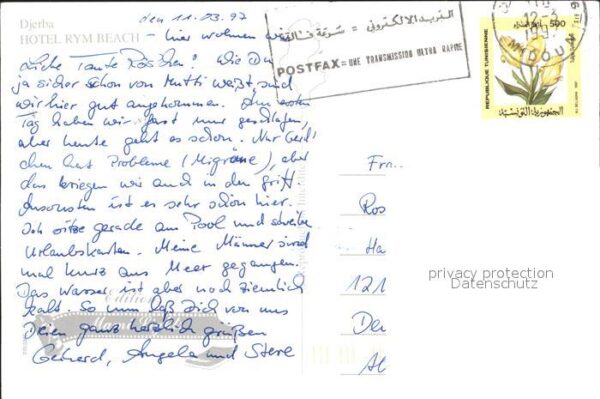 Djerba
HOTEL RYM BEACH
den 11.03.97
- hier wohnen wir
Liebe Tante Röschen! Wie Du
ja sicher schon von Mutti weißt, sind
wir hier gut angekommen. Am ersten
Tag haben wir fast nur geschlafen,
aber heute geht es schon. Nur
chen hat Probleme (Migräne), aber
das kriegen wir auch in den Griff
Ansonsten ist es sehr schön hier.
Ich sitze gerade am Pool und schreibe
Urlaubskarten. Meine Männer sind
mal kurz ans Meer gegangen.
Das Wasser ist aber noch ziemlich
kalt. So nun laß Dich von uns
Dreien ganz herzlich grüßen
Gerhard, Angela und Steve
Edition
البريد الإلكتروني = سرعة فائقة
POSTFAX = UNE TRANSMISSION ULTRA RAPIDE
12-3
199
MIDOUN
REPUBLIQUE TUNISIENNE
500
الجمهورية التونسية
Fra
Ros
Ha
121
Der
Al
privacy protection
Datenschutz